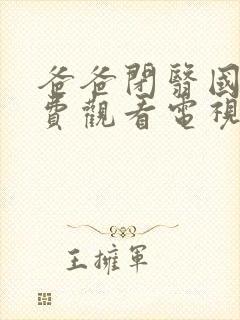 爸爸閉嘴國
費觀看電視
王擁軍